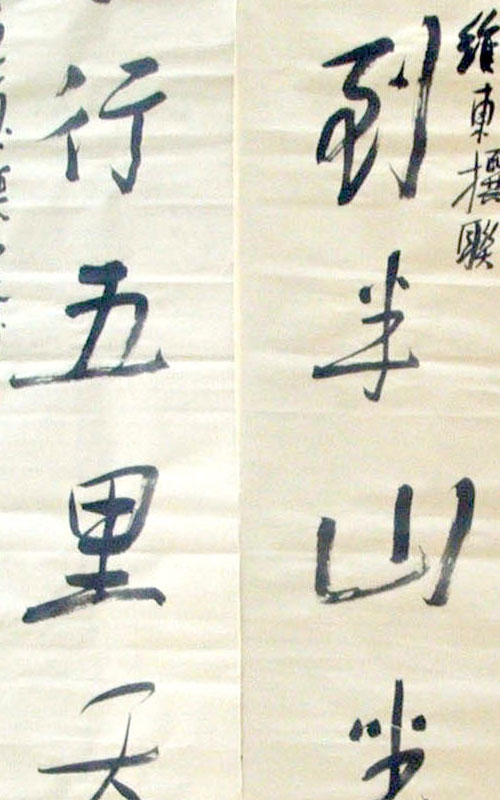 維東撰聯
到半山半
行五里天